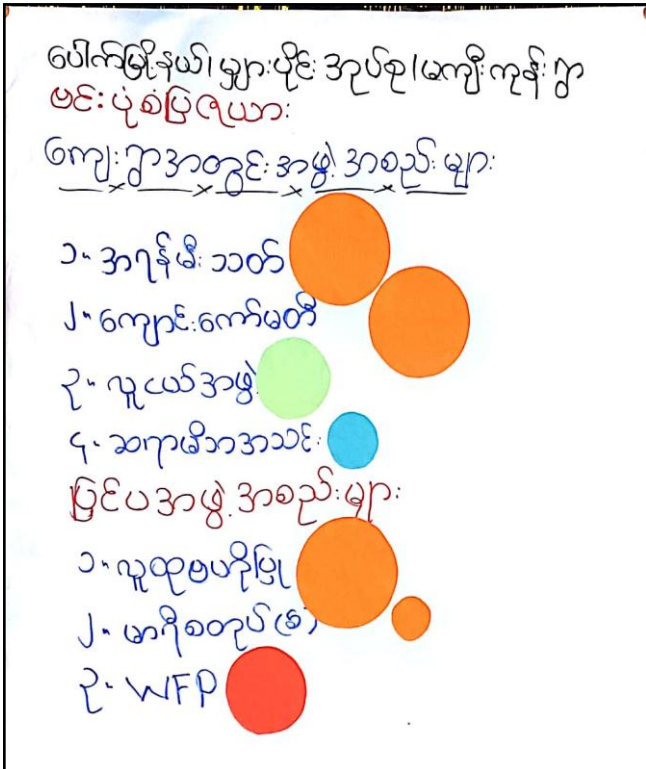 ပေါက်မြို့နယ်၊မျှားပိုင်းအုပ်စု၊မကျီးကုန်းရွာ
ဗင်းပုံစံပြဇယား
ကျေးရွာအတွင်းအဖွဲ့အစည်းများ
၁။ အရန်မီးသတ်
၂။ ကျောင်းကော်မတီ
၃။ လူငယ်အဖွဲ့
၄။ ဆရာမိဘအသင်း
ပြင်ပအဖွဲ့အစည်းများ
၁။ လူထုဗဟိုပြု
၂။ မာရီစတုပ် (စ)
၃။ WFP